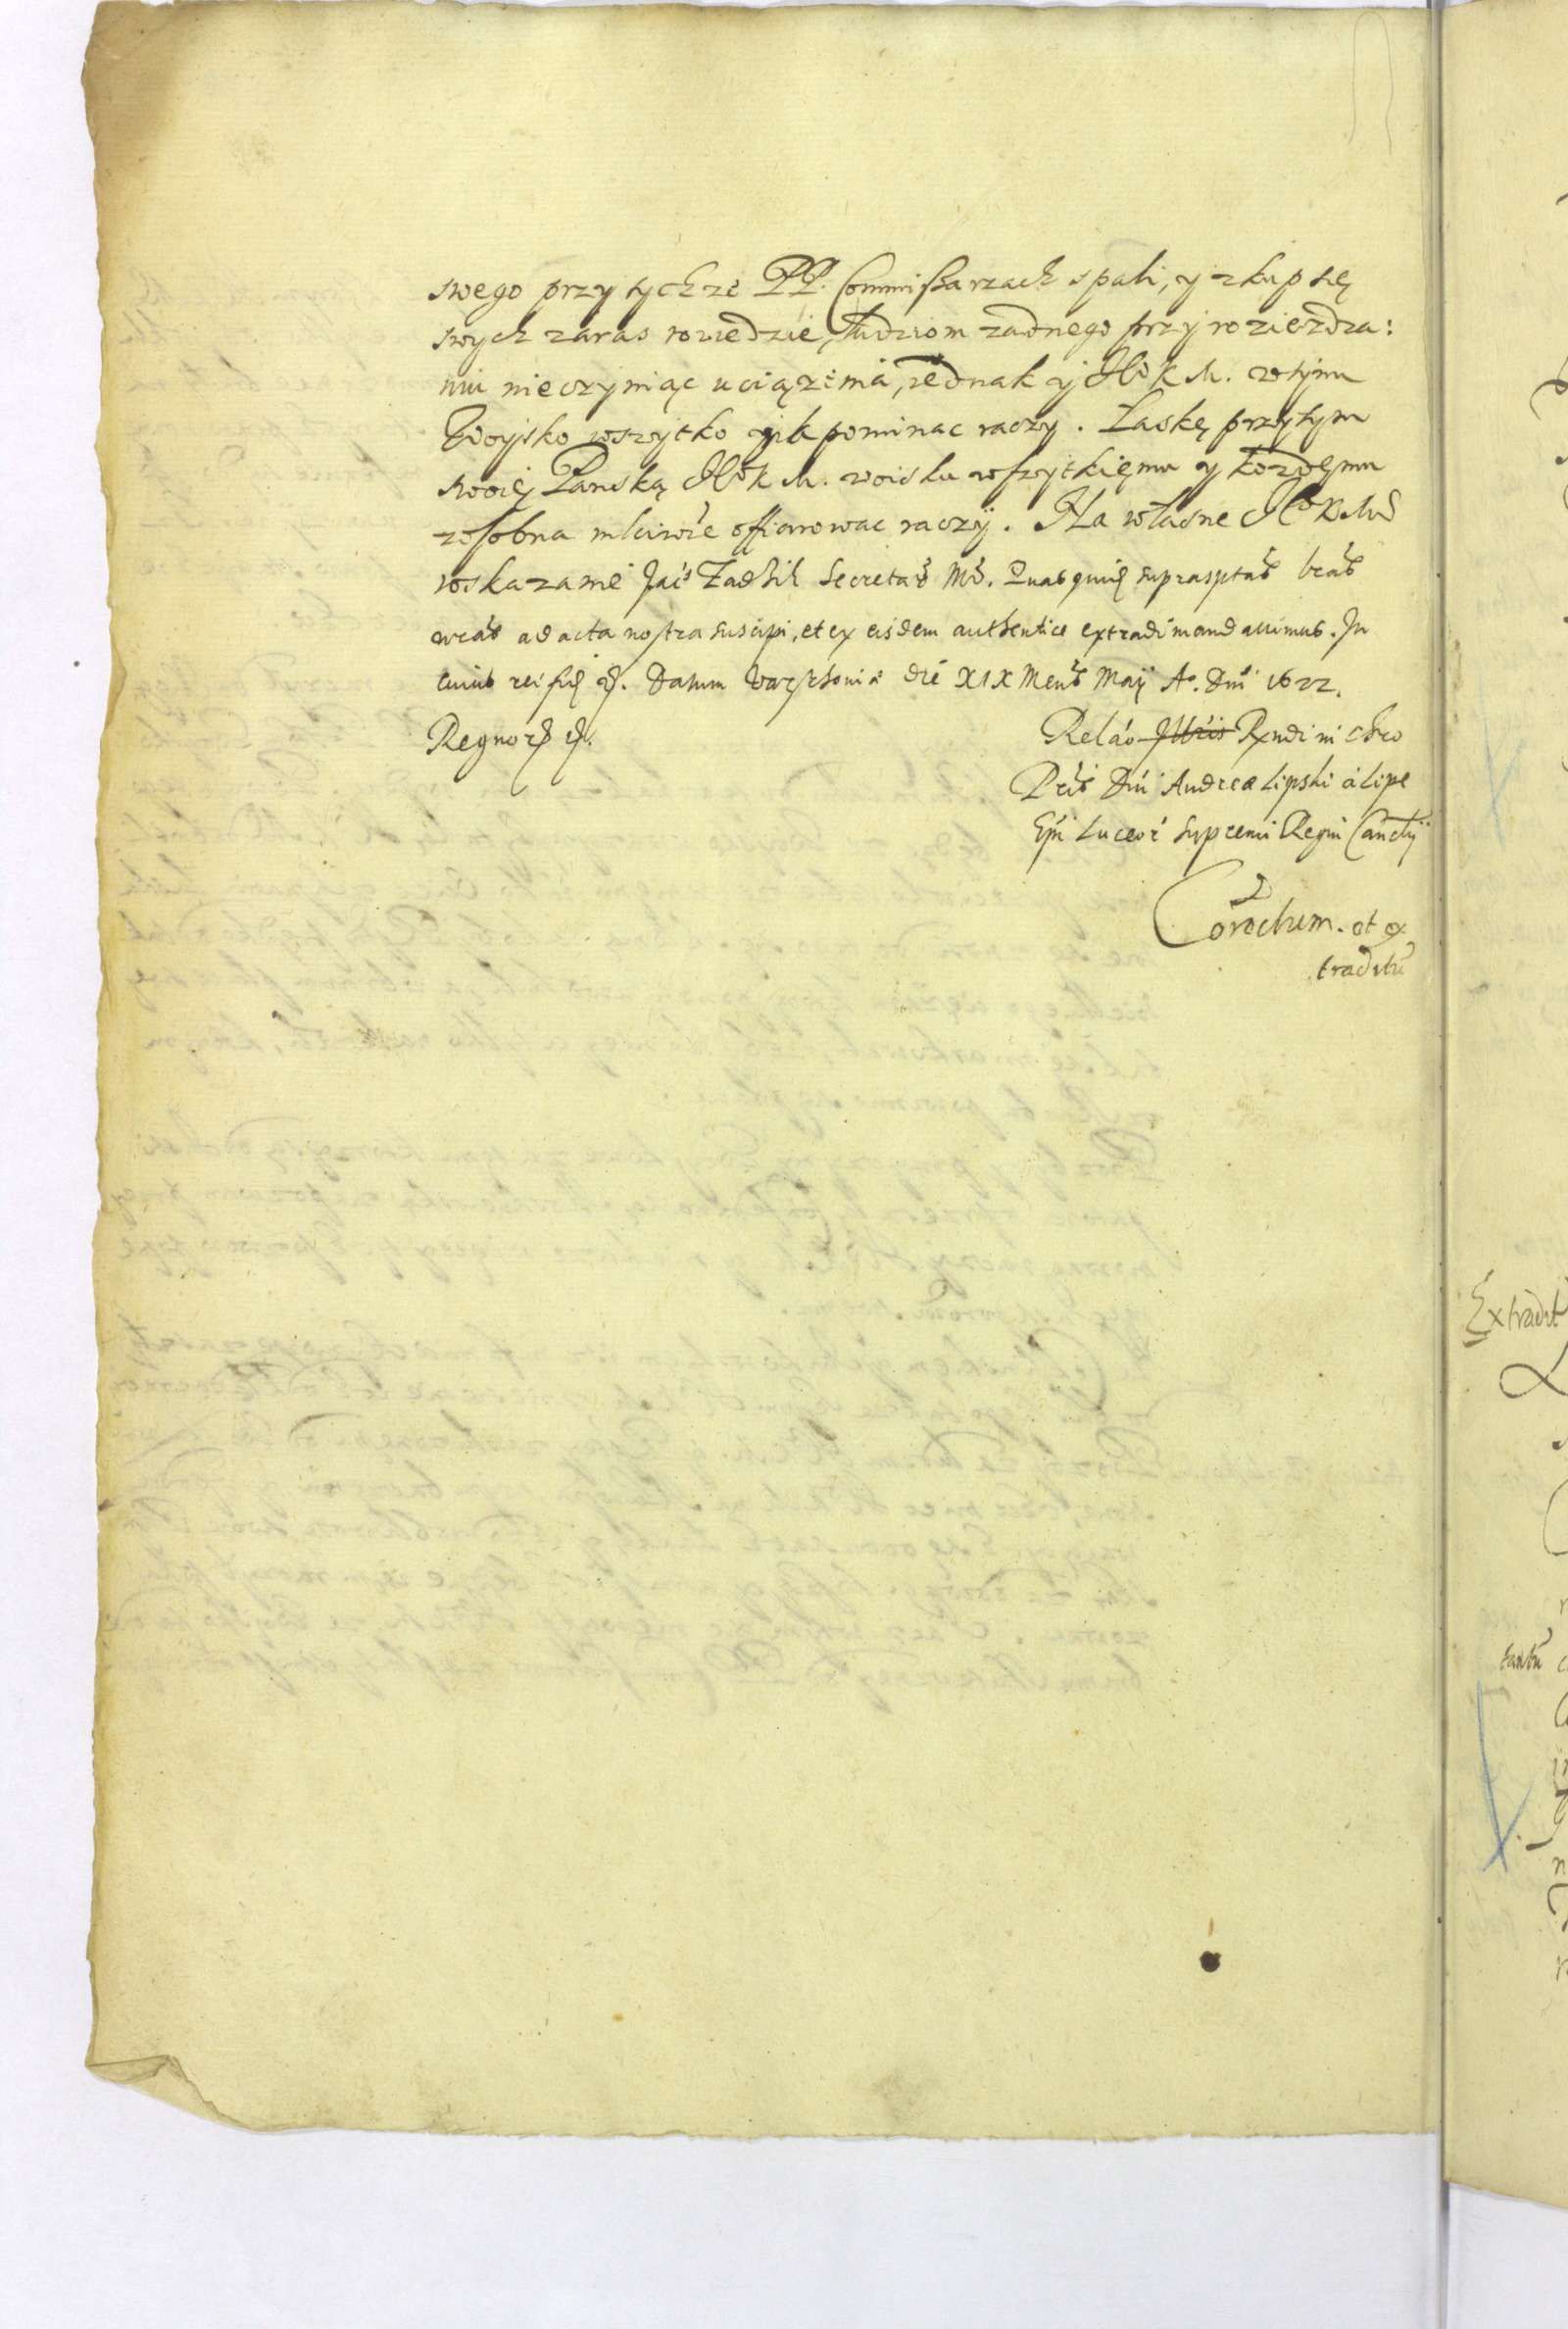 swego przy tychze PP. Commissarzach spali, y z kup się
swych zaras roziedzie, ludziom zadnego przy rozieżdza:
niu nieczyniąc uciązenia, iednak y JKo K M. w tym
Woysko wszytko upominac raczy. Łaskę przytym
swoię Panską JKo K M. woisku wszytkięmu y kozdęmu
zosobna mlciwie offiarowac raczÿ. Na własne Jo K Mci
roskazanie Jacs Zadzik Secretars Mr. Quas quidę suprasptas lras
nras ad acta nostra suscipi, et ex eisdem authentice extradi mandavimus. In
cuius rei fidę &. Datum Varschoniæ die XIX Mens Maÿ Ao. Dni 1622.
Regnorȝ &.
Relao Illris Rxndi in chro
Pris Dni Andreæ Lipski a Lipe
Epi Luceor Supremi Regni Cancÿ
Corectum. et ex
traditu
Extradit
tantu